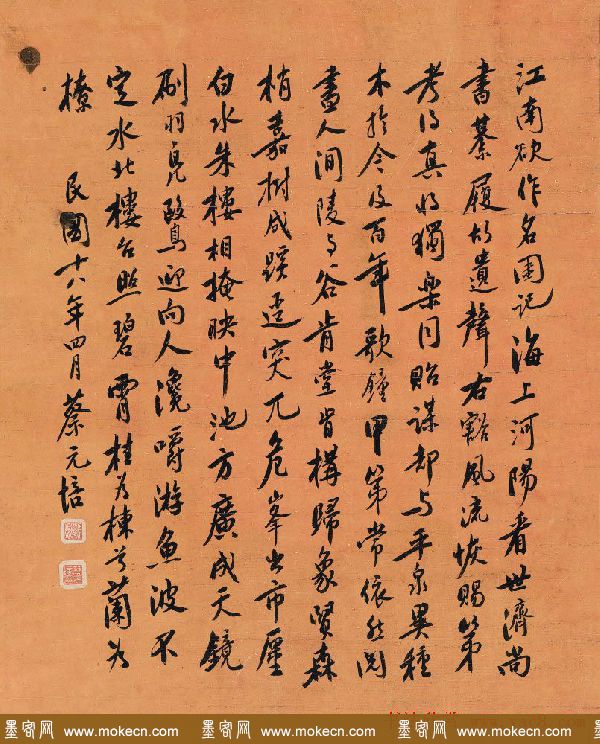 江南欲作名園記海上河陽看世濟尚
書綦履故遺聲右丞風流恢賜第
考得真將獨樂同貽謀卻与平泉異種
木於今及百年歌鐘甲第常依然閱
盡人間陵与谷肯堂肯構歸象賢森
梢嘉樹成蹊逕突兀危峯出市廛
白水朱樓相掩映中池方廣成天鏡
刷羽鳧鷖迎向人瀺嚼游魚波不
定水北樓台照碧霄桂為棟兮蘭為
橑 民國十八年四月蔡元培
墨客网 www.mokecn.com 墨客网 www.mokecn.com 墨客网 www.mokecn.com